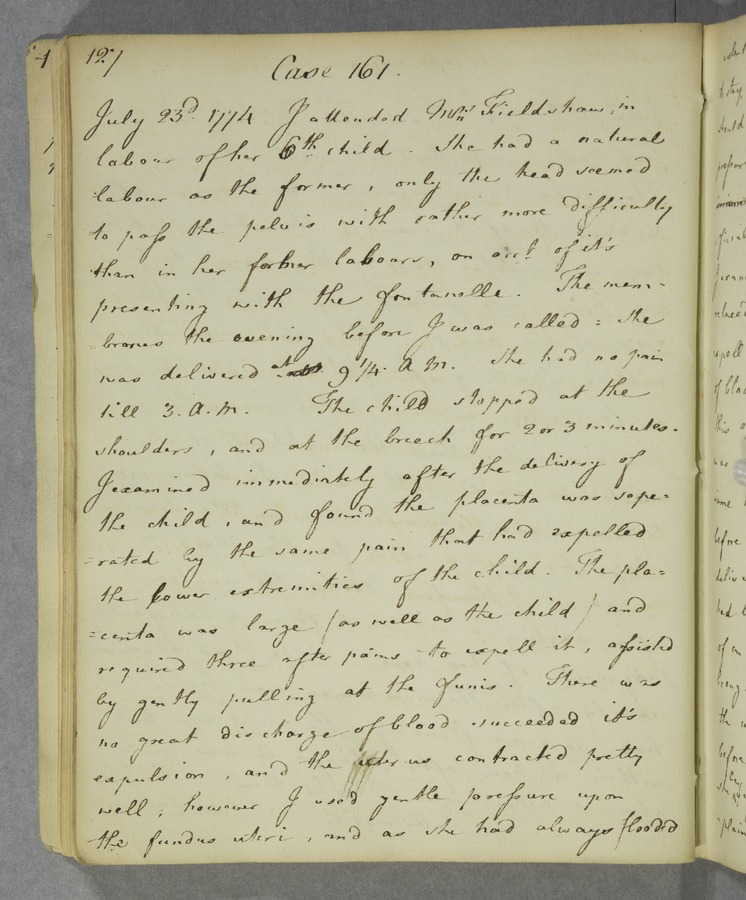 127
Case 161.
July 23d. 1774 I attended Mrs. Fieldshaw, in
labour of her 6th. child. She had a natural
labour as the former, only the head seemed
to pass the pelvis with rather more difficulty
than in her former labours, on acct. of it's
presenting with the fontanelle. The mem-
-branes the evening before I was called = She
was delivered at 9 1/4. A M. She had no pain
till 3. A. M. The child stopped at the
shoulders, and at the breech for 2 or 3 minutes.
I examined immediately after the delivery of
the child, and found the placenta was sepe=
=rated by the same pain that had expelled
the lower extremities of the child. The pla=
=centa was large (as well as the child) and
required three after pains to expell it, assisted
by gently pulling at the funis. There was
no great discharge of blood succeeded it's
expulsion, and the uterus contracted pretty
well; however I used gentle pressure upon
the fundus uteri, and as she had always flooded